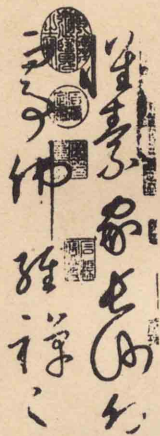 懷素家長沙幼
而事佛經禪之